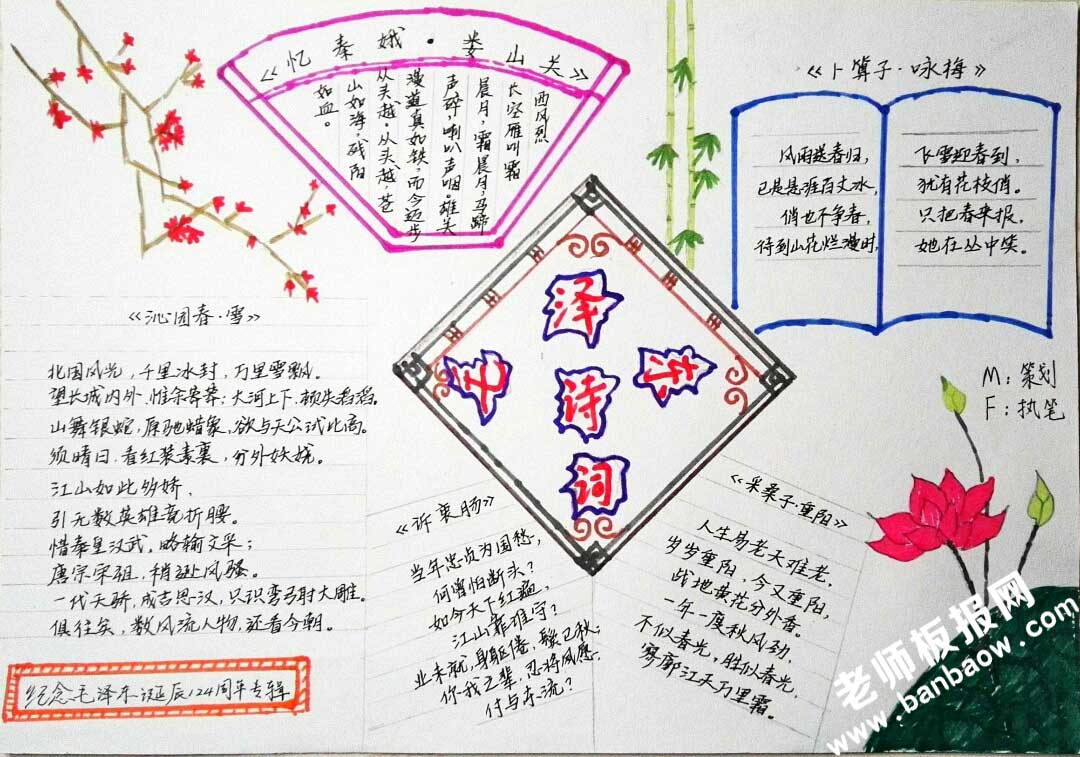 《忆秦娥·娄山关》
西风烈
长空雁叫霜
晨月,霜晨月,马蹄
声碎,喇叭声咽。雄关
漫道真如铁,而今迈步
从头越。从头越,苍
山如海,残阳
如血。
《卜算子·咏梅》
风雨送春归,
已是悬崖百丈冰,
俏也不争春,
待到山花烂漫时,
飞雪迎春到,
犹有花枝俏。
只把春来报,
她在丛中笑。
毛泽东
诗词
M:策划
F:执笔
《沁园春·雪》
北国风光,千里冰封,万里雪飘。
望长城内外,惟余莽莽;大河上下,顿失滔滔。
山舞银蛇,原驰蜡象,欲与天公试比高。
须晴日,看红装素裹,分外妖娆。
江山如此多娇,
引无数英雄竞折腰。
惜秦皇汉武,略输文采;
唐宗宋祖,稍逊风骚。
一代天骄,成吉思汉,只识弯弓射大雕。
俱往矣,数风流人物,还看今朝。
纪念毛泽东诞辰124周年专辑
《诉衷肠》
当年忠贞为国愁,
何曾怕断头?
如今天下红遍,
江山靠谁守?
业未就,身躯倦,鬓已秋;
你我之辈,忍将夙愿,
付与东流?
《采桑子·重阳》
人生易老天难老,
岁岁重阳,今又重阳,
战地黄花分外香。
一年一度秋风劲,
不似春光,胜似春光,
寥廓江天万里霜。
老师板报网
www.banbaow.com